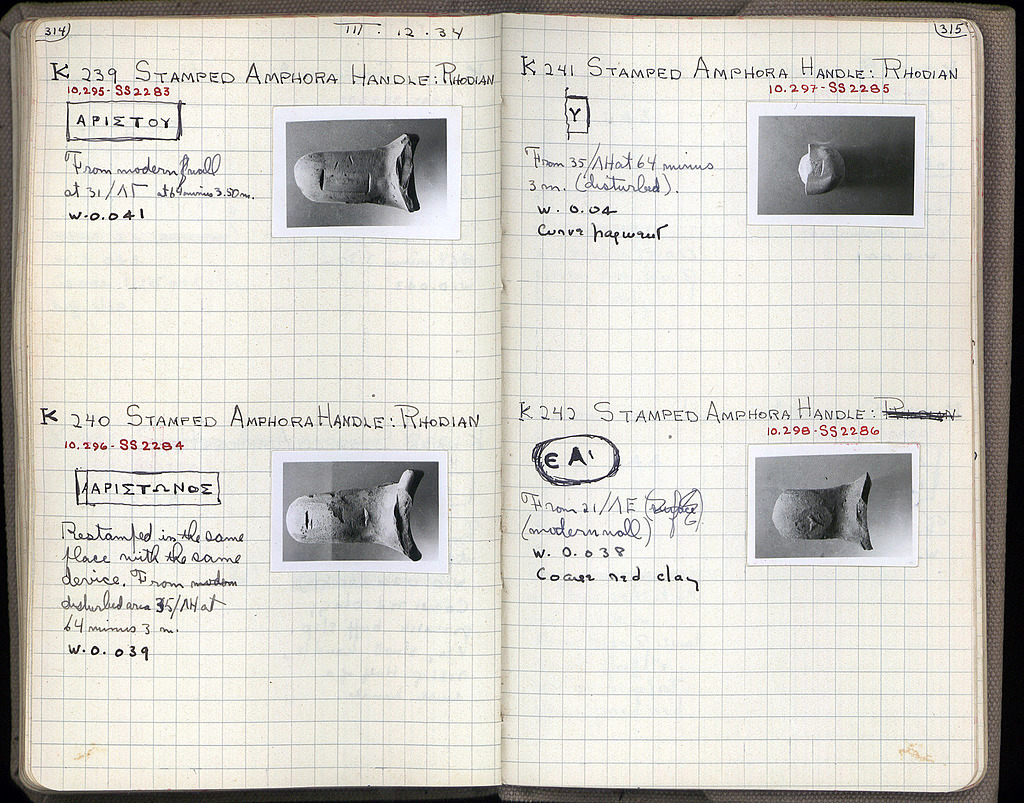 314
III . 12 . 34
K 239 STAMPED AMPHORA HANDLE: RHODIAN
10.295-SS2283
ΑΡΙΣΤΟΥ
From modern wall
at 31/ΛΓ at 64 minus 3.50 m.
W.0.041
K 240 STAMPED AMPHORA HANDLE: RHODIAN
10.296-SS2284
ΑΡΙΣΤΩΝΟΣ
Restamped in the same
place with the same
device. From modern
disturbed area 35/ΛΗ at
64 minus 3 m.
W.0.039
315
K 241 STAMPED AMPHORA HANDLE: RHODIAN
10.297-SS2285
Υ
From 35/ΛΗ at 64 minus
3 m. (disturbed).
W. 0.04
Curve fragment
K 242 STAMPED AMPHORA HANDLE: RHODIAN
10.298-SS2286
Є Α'
From 21/ΛΕ
(modern wall)
W. 0.038
Coarse red clay